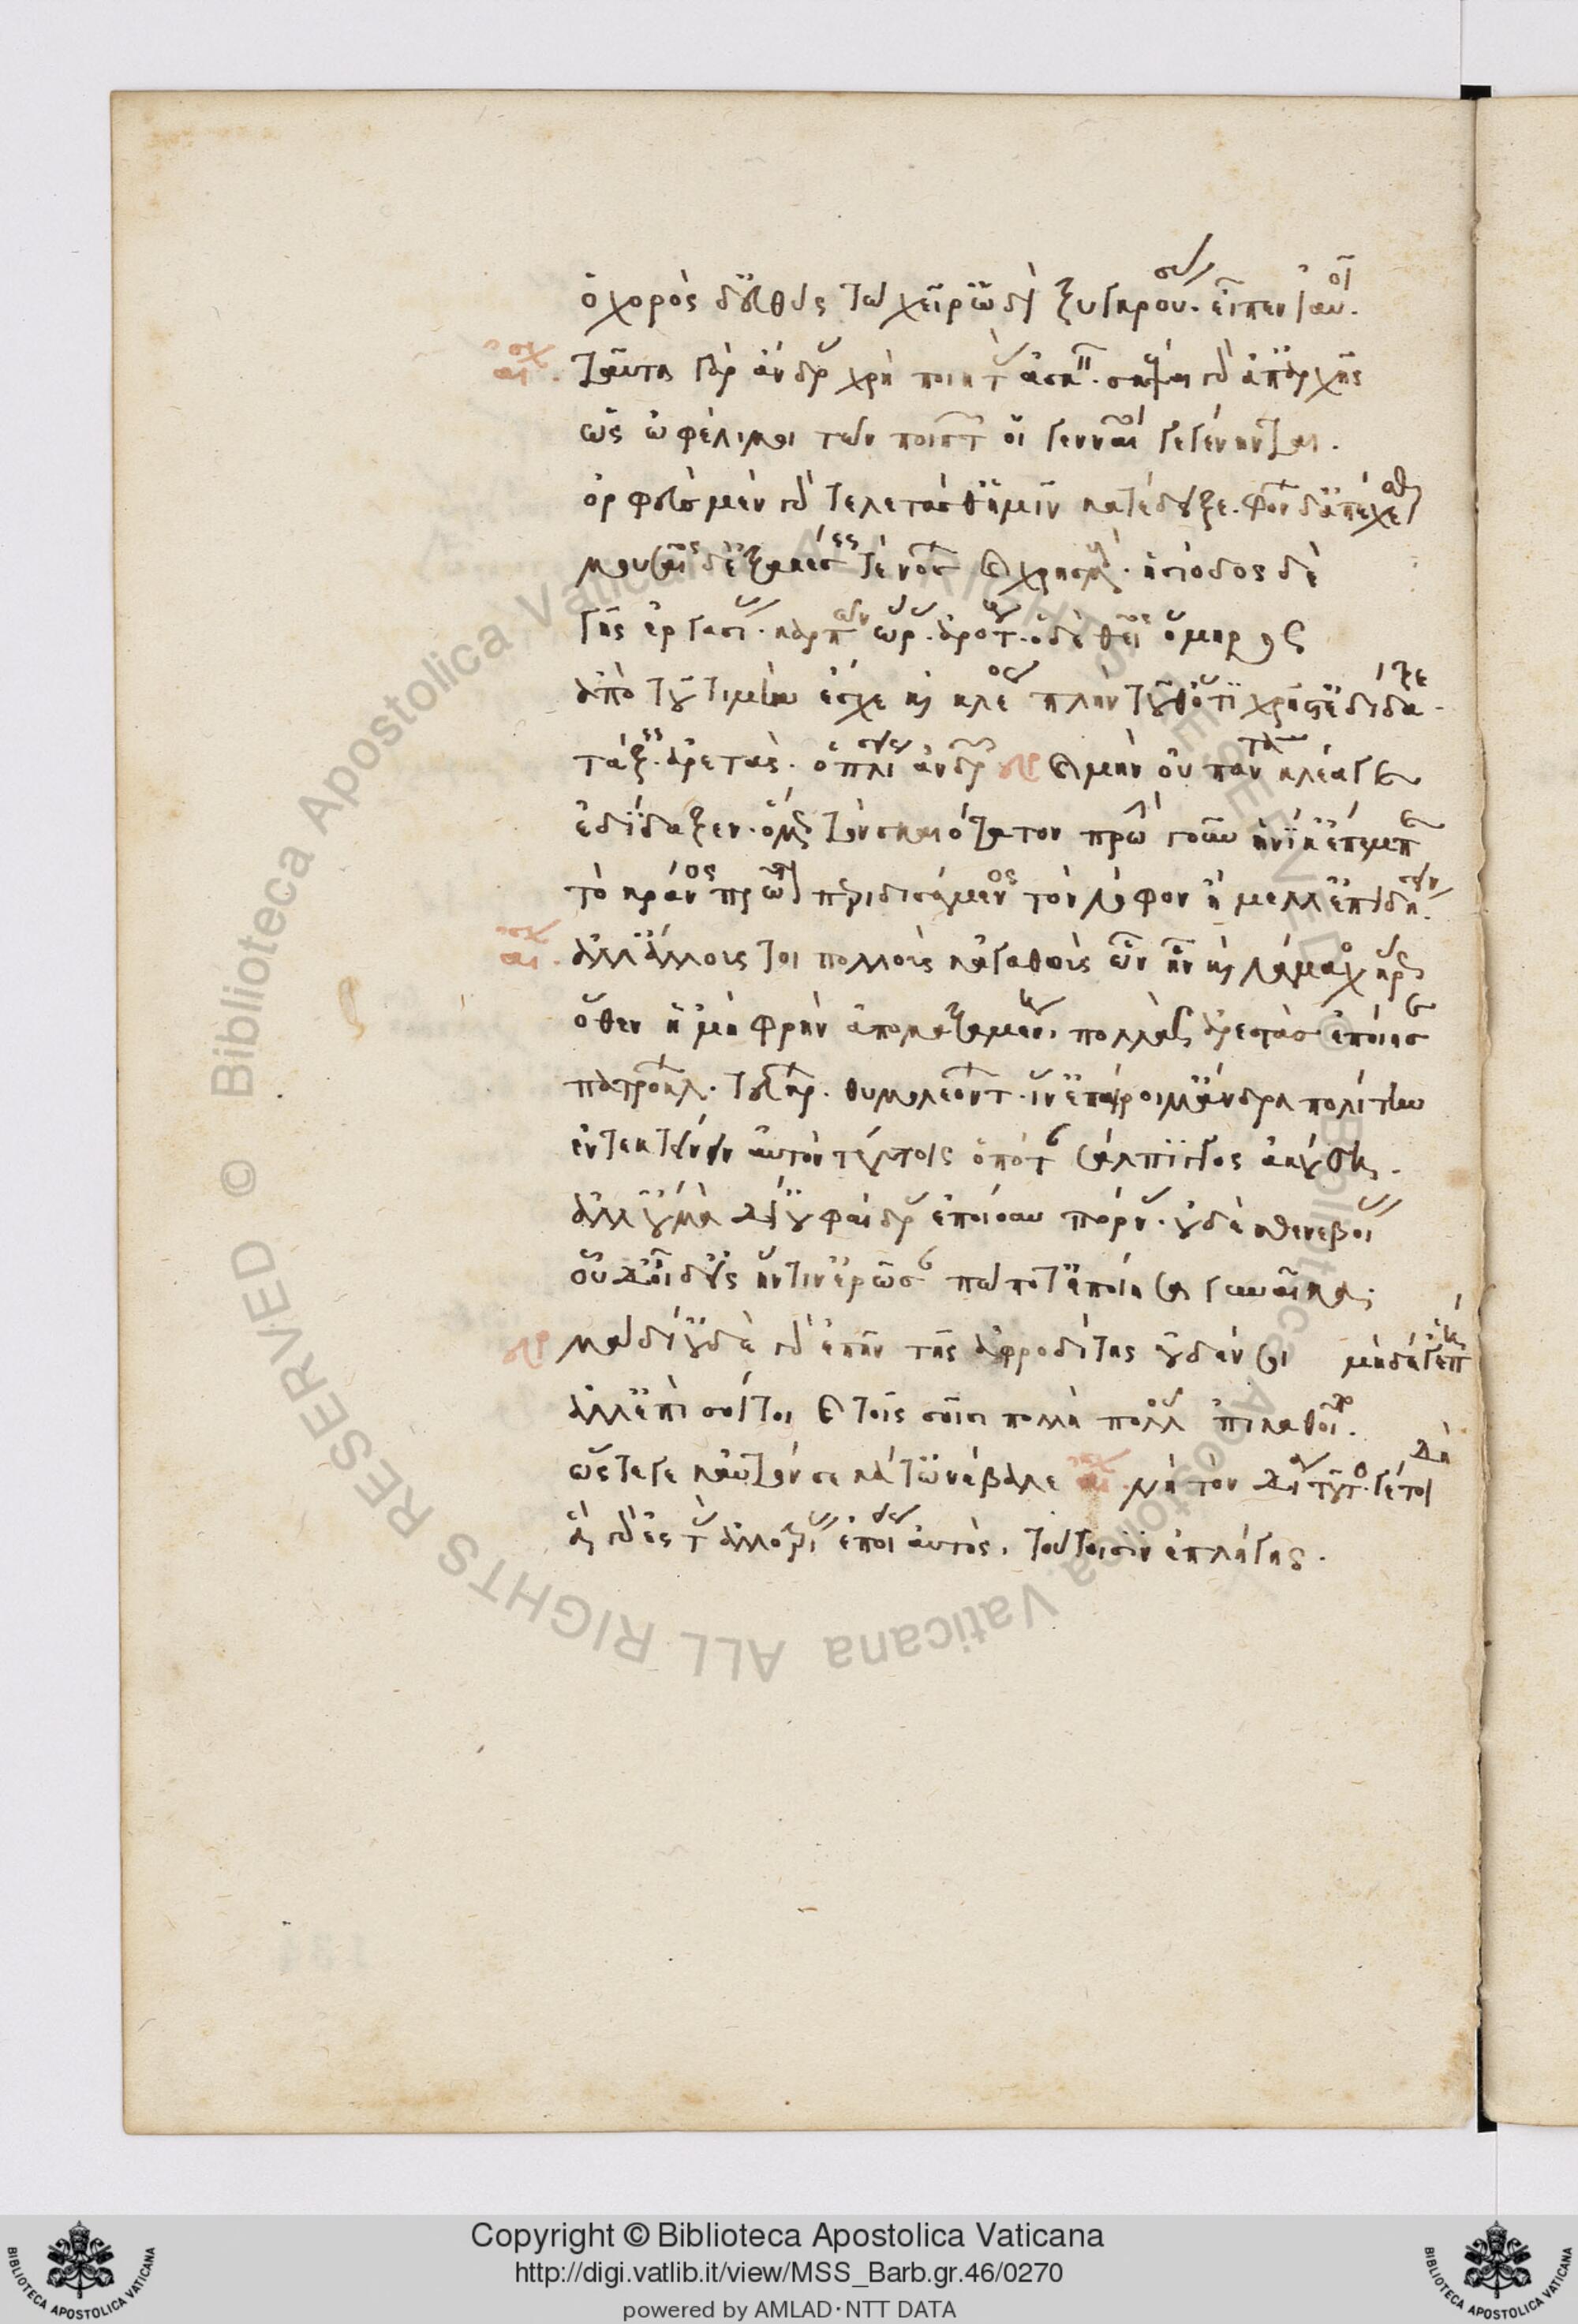 ὁ χορὸς δ' εὐθὺς τὼ χεῖρ' ὡδὶ ξυγκρούσας εἶπεν ἰαυοῖ.
αἰσχ. ταῦτα γὰρ ἄνδρας χρὴ ποιητὰς ἀσκεῖν. σκέψαι γὰρ ἀπ' ἀρχῆς
ὡς ὠφέλιμοι τῶν ποιητῶν οἱ γενναῖοι γεγένηνται.
ὀρφεὺς μὲν γὰρ τελετάς θ' ἡμῖν κατέδειξε φόνων δ' ἀπέχεσθαι
μουσαῖος δ' ἐξακέσεις τε νόσων καὶ χρησμούς. ἡσίοδος δὲ
γῆς ἐργασίας. καρπῶν ὥρας. ἀρότους. ὁ δὲ θεῖος ὅμηρος
ἀπὸ τοῦ τιμὴν ἔσχε καὶ κλέος πλὴν τοῦδ' ὅτι χρήστ' ἐδίδαξε
τάξεις. ἀρετάς. ὁπλίσεις ἀνδρῶν διο καὶ μὴν οὐ παντακλέα γε
ἐδίδαξεν ὅμως τὸν σκαιότατον πρώην γοῦν ἡνίκ' ἔπεμπε
τὸ κράνος πρῶτον περιδησάμενος τὸν λόφον ἤμελλ' ἐπιδήσειν.
αἰσχ. ἀλλ' ἄλλους τοι πολλοὺς κἀγαθοὺς ὧν ἦν καὶ λάμαχος ἥρως
ὅθεν ἡ 'μὴ φρὴν ἀπομαξαμένη πολλὰς ἀρετὰς ἐποίησε
πατρόκλων. τεύκρων. θυμολεόντων. ἵν' ἐπαίροιμ' ἄνδρα πολίτην
ἐντεκτείνειν αὑτὸν τούτοις ὁπότε σάλπιγγος ἀκούσῃ.
ἀλλ' οὐ μὰ δί' οὐ φαίδρας ἐποίουν πόρνας. οὐδὲ σθενεβοίας
οὐδ' οἶδ' οὐδεὶς ἥντιν' ἐρῶσαν πώποτ' ἐποίησα γυναῖκα.
διο μὰ δί' οὐδὲ γὰρ ἐπῆν τῆς ἀφροδίτης οὐδέν σοι μηδέ γ' ἐπείη
ἀλλ' ἐπὶ σοί τοι καὶ τοῖς σοῖσι πολλὴ πολλοῦ 'πικαθοῖτο.
ὥστε γε καὐτόν σε κατ' ὦν ἔβαλε αἰσχ. νὴ τὸν δία τοῦτό γέ τοι δὴ
ἃ γὰρ ἐς τὰς ἀλλοτρίας ἐποίεις αὐτὸς τούτοισιν ἐπλήγης.
Copyright © Biblioteca Apostolica Vaticana
http://digi.vatlib.it/view/MSS_Barb.gr.46/0270
powered by AMLAD·NTT DATA